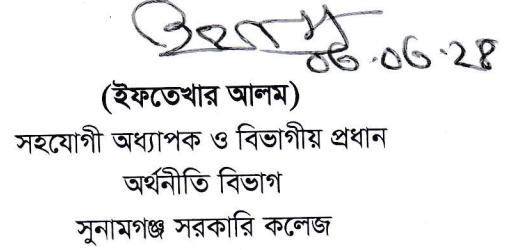 ০৬.০৬.২৪
(ইফতেখার আলম)
সহযোগী অধ্যাপক ও বিভাগীয় প্রধান
অর্থনীতি বিভাগ
সুনামগঞ্জ সরকারি কলেজ